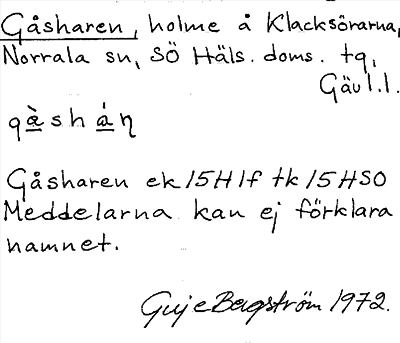 Gåsharen, holme å Klacksörarna,
Norrala sn, SÖ Häls. doms. tg,
Gäv l.l.
gà̱shá̱ņ
Gåsharen ek 15H1f tk 15HSO
Meddelarna kan ej förklara
namnet.
Guje Bergström 1972.